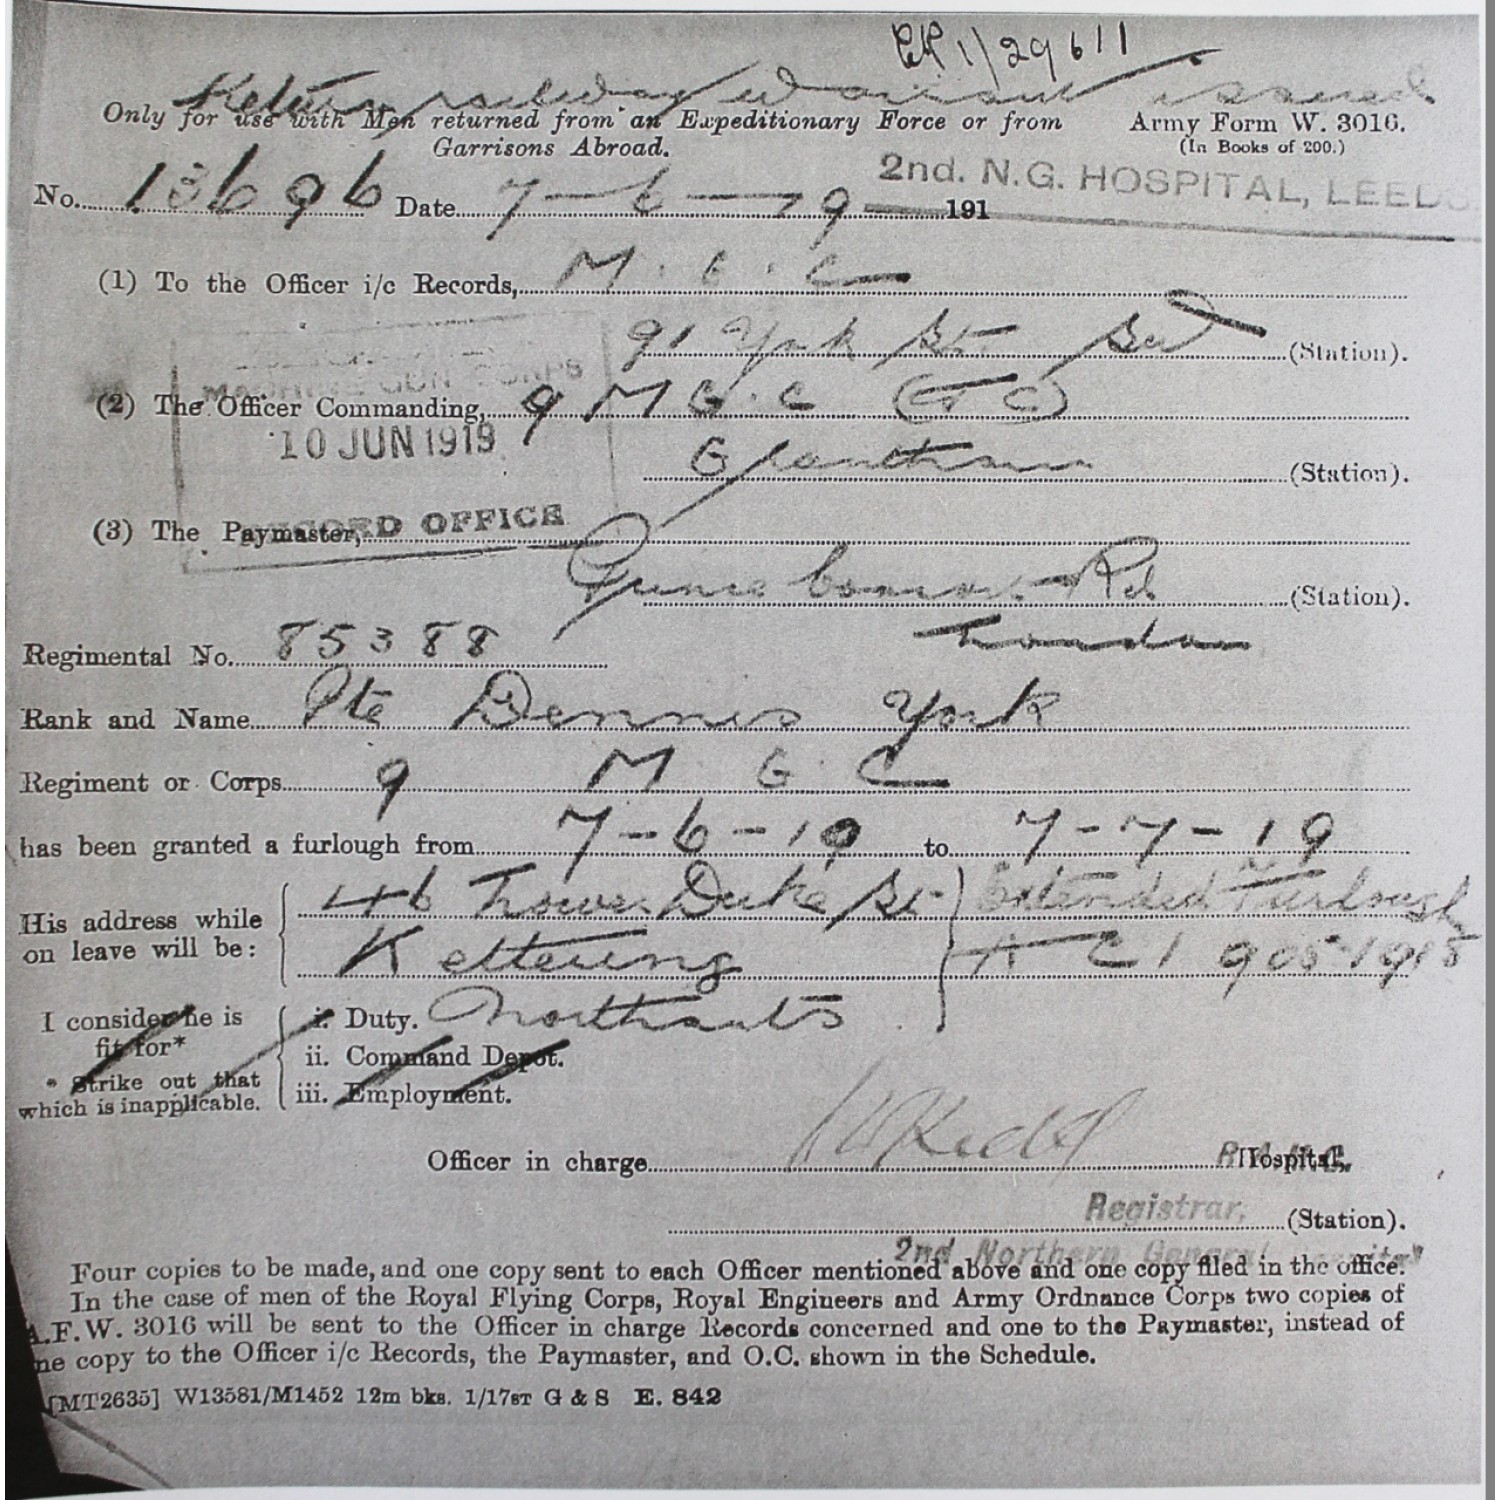 1/29611
Return railway warrant issued
Only for use with Men returned from an Expeditionary Force or from
Garrisons Abroad.
Army Form W. 3016.
(In Books of 200.)
2nd. N.G. HOSPITAL, LEEDS
No. 13696 Date 7-6-19 191
(1) To the Officer i/c Records, M.G.C
91 York St. SW (Station).
MACHINE GUN CORPS
(2) The Officer Commanding, 9 M G.C (TC)
10 JUN 1919
Grantham (Station).
(3) The Paymaster,
RECORD OFFICE
Prince Consort Rd (Station).
London
Regimental No. 85388
Rank and Name Pte Dennis York
Regiment or Corps 9 M.G.C
has been granted a furlough from 7-6-19 to 7-7-19
His address while on leave will be: 46 Lower Duke St
Kettering
Northants
Extended Furlough
ACI 905-1918
I consider he is fit for*
* Strike out that which is inapplicable.
i. Duty.
ii. Command Depot.
iii. Employment.
Officer in charge Hospital,
Registrar, (Station).
2nd Northern General Hospital
Four copies to be made, and one copy sent to each Officer mentioned above and one copy filed in the office.
In the case of men of the Royal Flying Corps, Royal Engineers and Army Ordnance Corps two copies of
A.F.W. 3016 will be sent to the Officer in charge Records concerned and one to the Paymaster, instead of
ne copy to the Officer i/c Records, the Paymaster, and O.C. shown in the Schedule.
[MT2635] W13581/M1452 12m bks. 1/17ST G & S E. 842